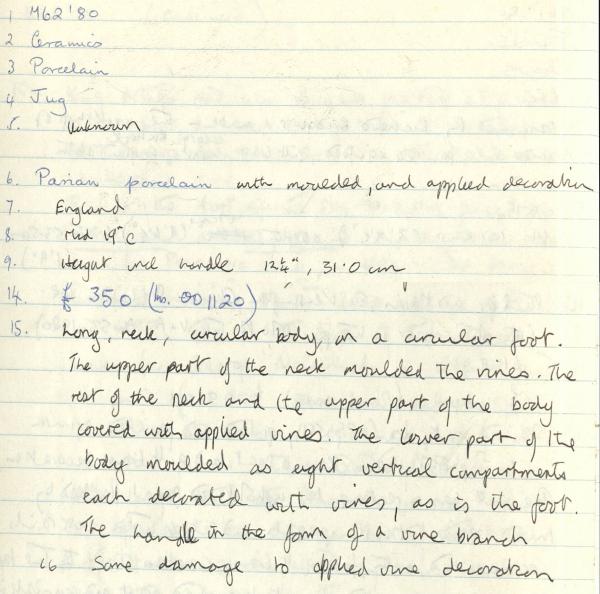 1 M62'80
2 Ceramics
3 Porcelain
4 Jug
5. Unknown
6. Parian porcelain with moulded, and applied decoration
7. England
8. Mid 19th C
9. Height incl handle 12¼", 31.0 cm
14. £ 350 (Ins. 001120)
15. Long, neck, circular body, on a circular foot.
The upper part of the neck moulded the vines. The
rest of the neck and the upper part of the body
covered with applied vines. The lower part of the
body moulded as eight vertical compartments
each decorated with vines, as is the foot.
The handle in the form of a vine branch
16 Some damage to applied vine decoration